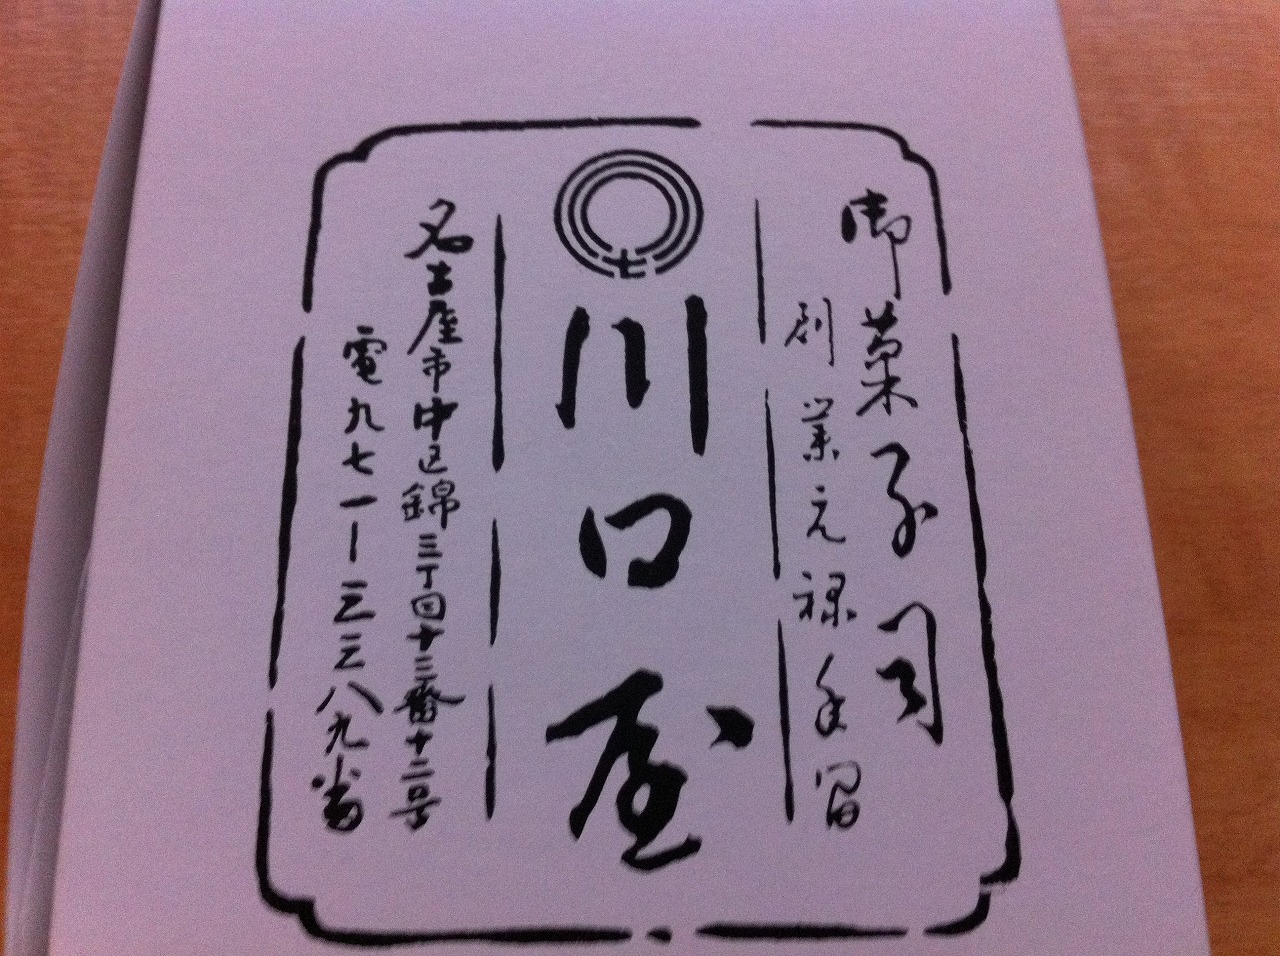 御菓子司
創業元禄年間
七
川口屋
名古屋市中区錦三丁目十三番十二号
電九七一―三三八九番